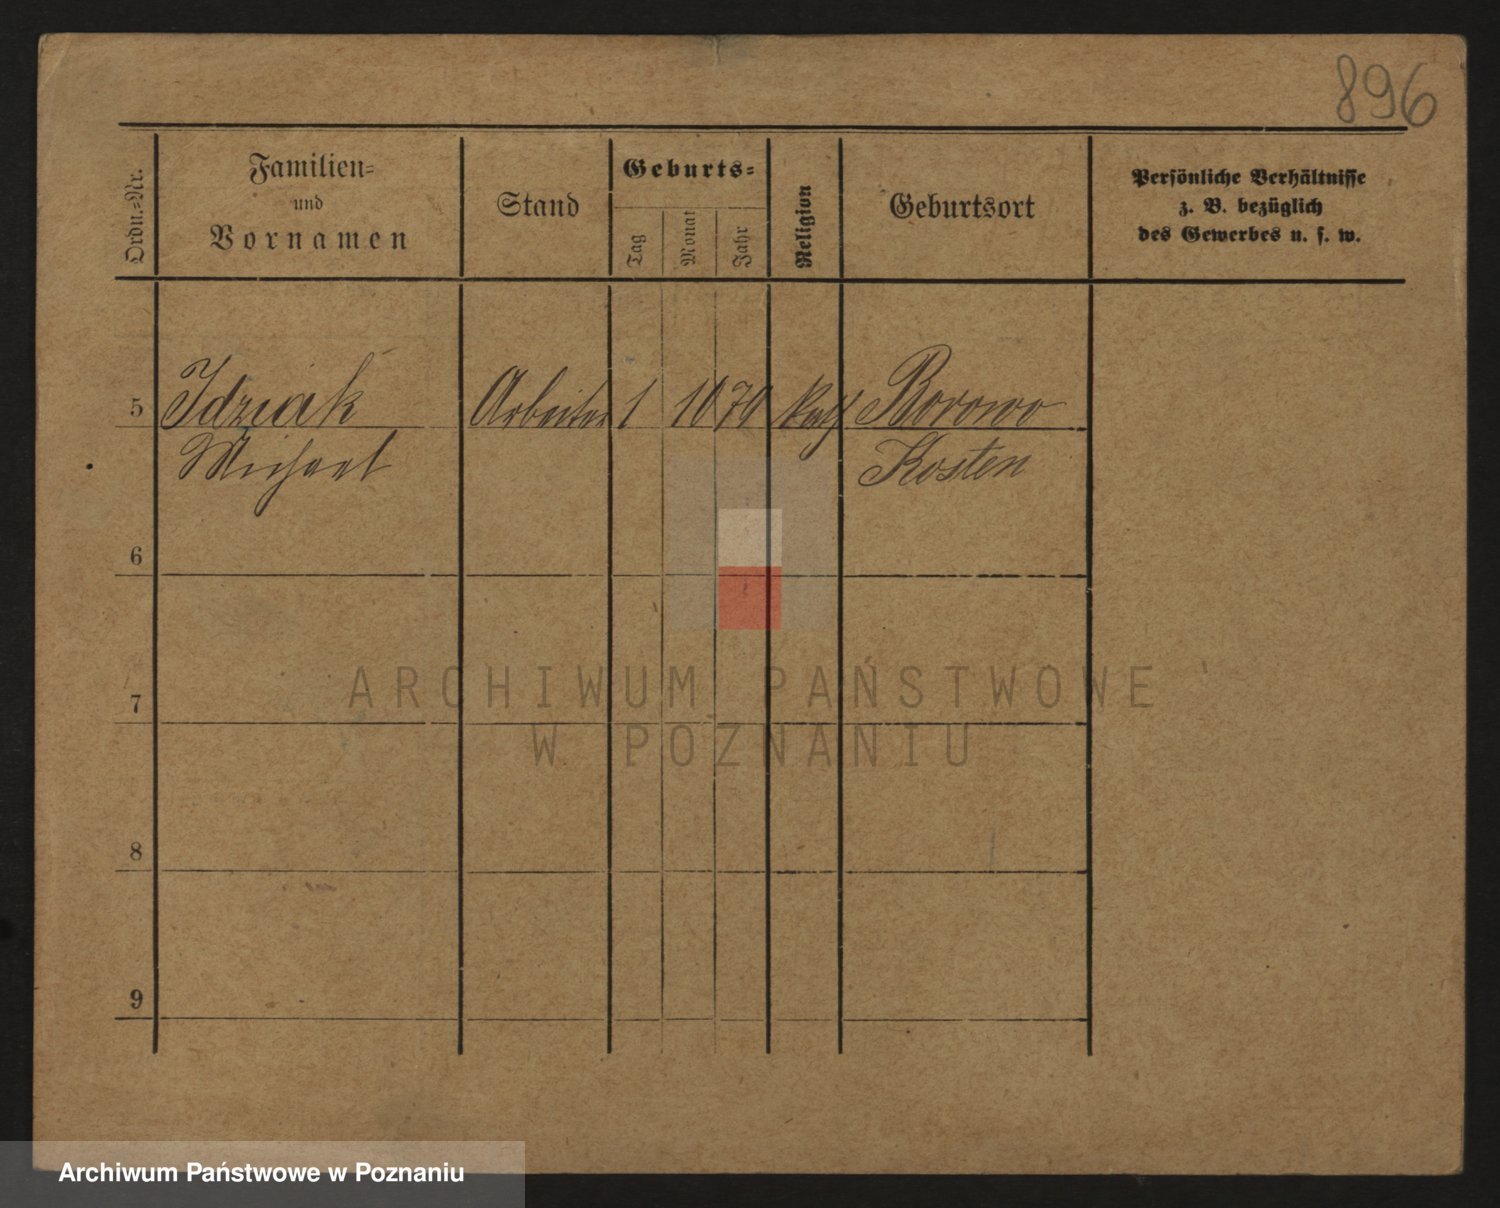 896
Ordn.-Nr.
Familien-
und
Vornamen
Stand
Geburts-
Tag
Monat
Jahr
Religion
Geburtsort
Persönliche Verhältnisse
z. B. bezüglich
des Gewerbes u. s. w.
5 Idziak Arbeiter 1 10 70 kath Borowo
Michael Kosten
6
7
8
9
ARCHIWUM PAŃSTWOWE
W POZNANIU
Archiwum Państwowe w Poznaniu